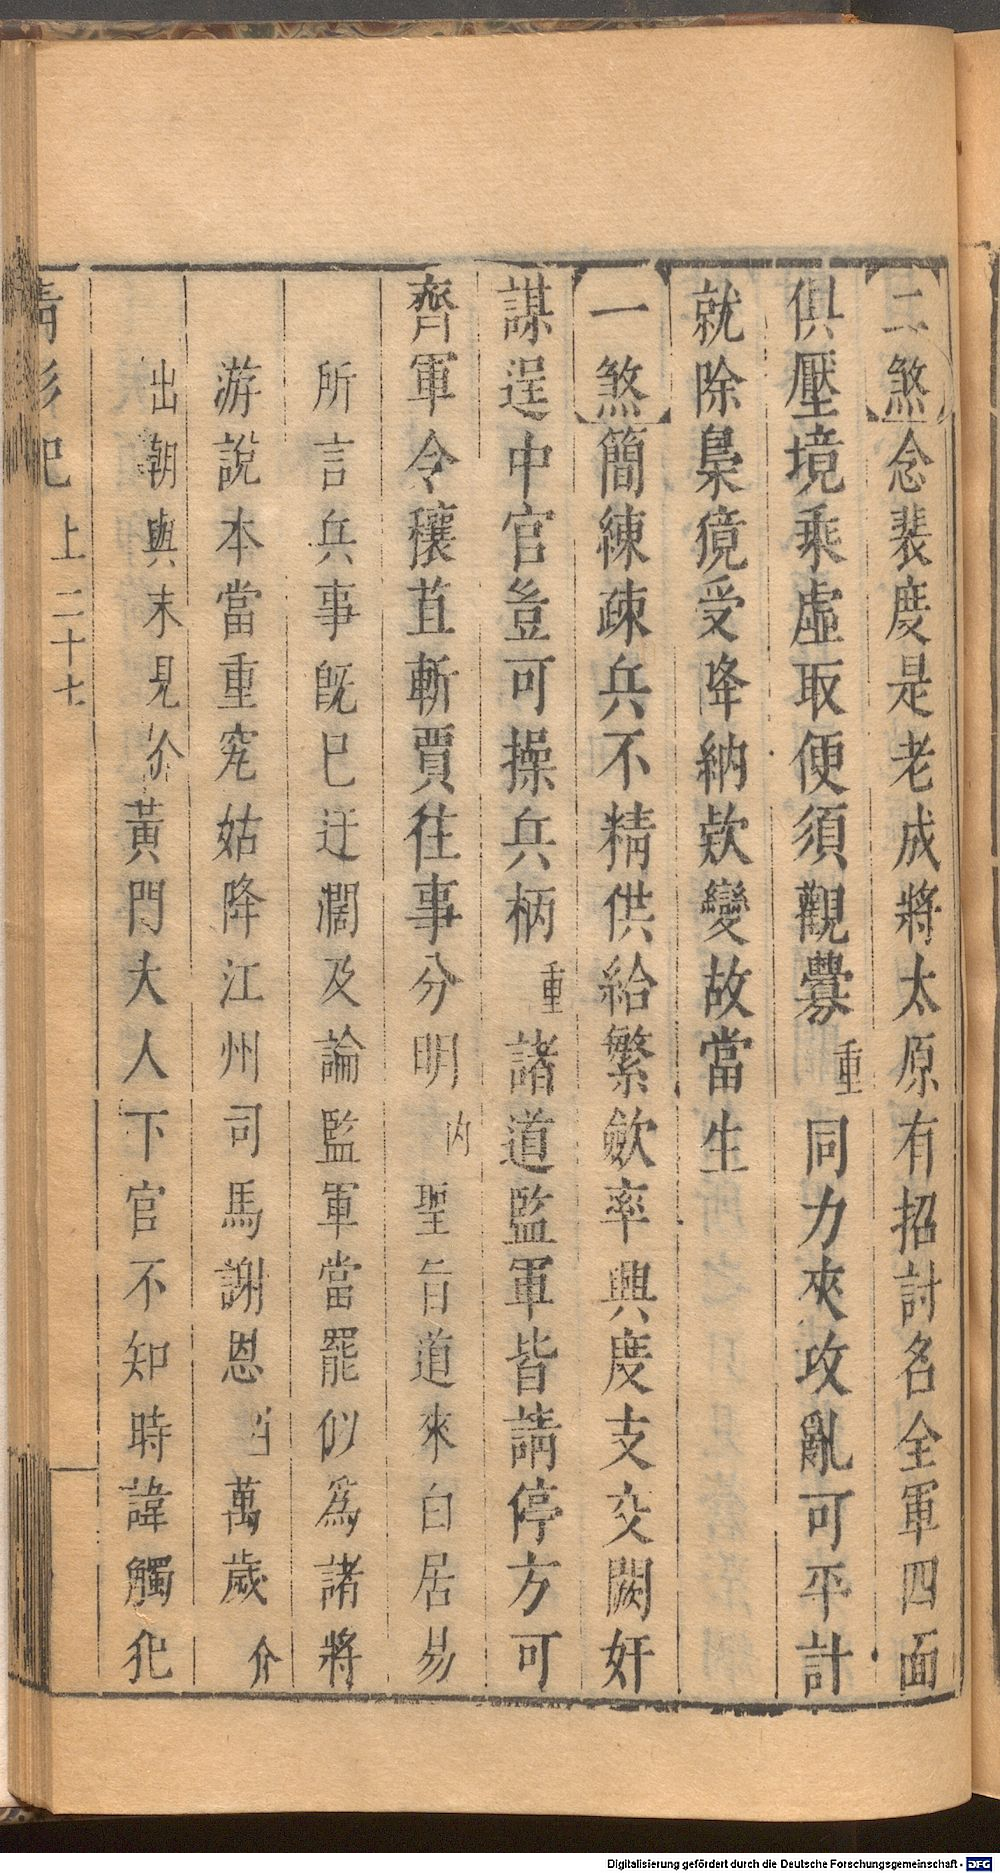 二煞念裴度是老成將太原有招討名全軍四面
俱壓境乘虛取便須觀釁重同力夾攻亂可平計
就除梟獍受降納欵變故當生
一煞簡練疎兵不精供給繁斂率興度支交闕奸
謀逞中官豈可操兵柄重諸道監軍皆請停方可
齊軍令穰苴斬賈往事分明內聖旨道來白居易
所言兵事旣已迂濶及論監軍當罷似爲諸將
游說本當重究姑降江州司馬謝恩萬歲介
出朝與末見介黃門大人下官不知時諱觸犯
上二十七
Digitalisierung gefördert durch die Deutsche Forschungsgemeinschaft - DFG